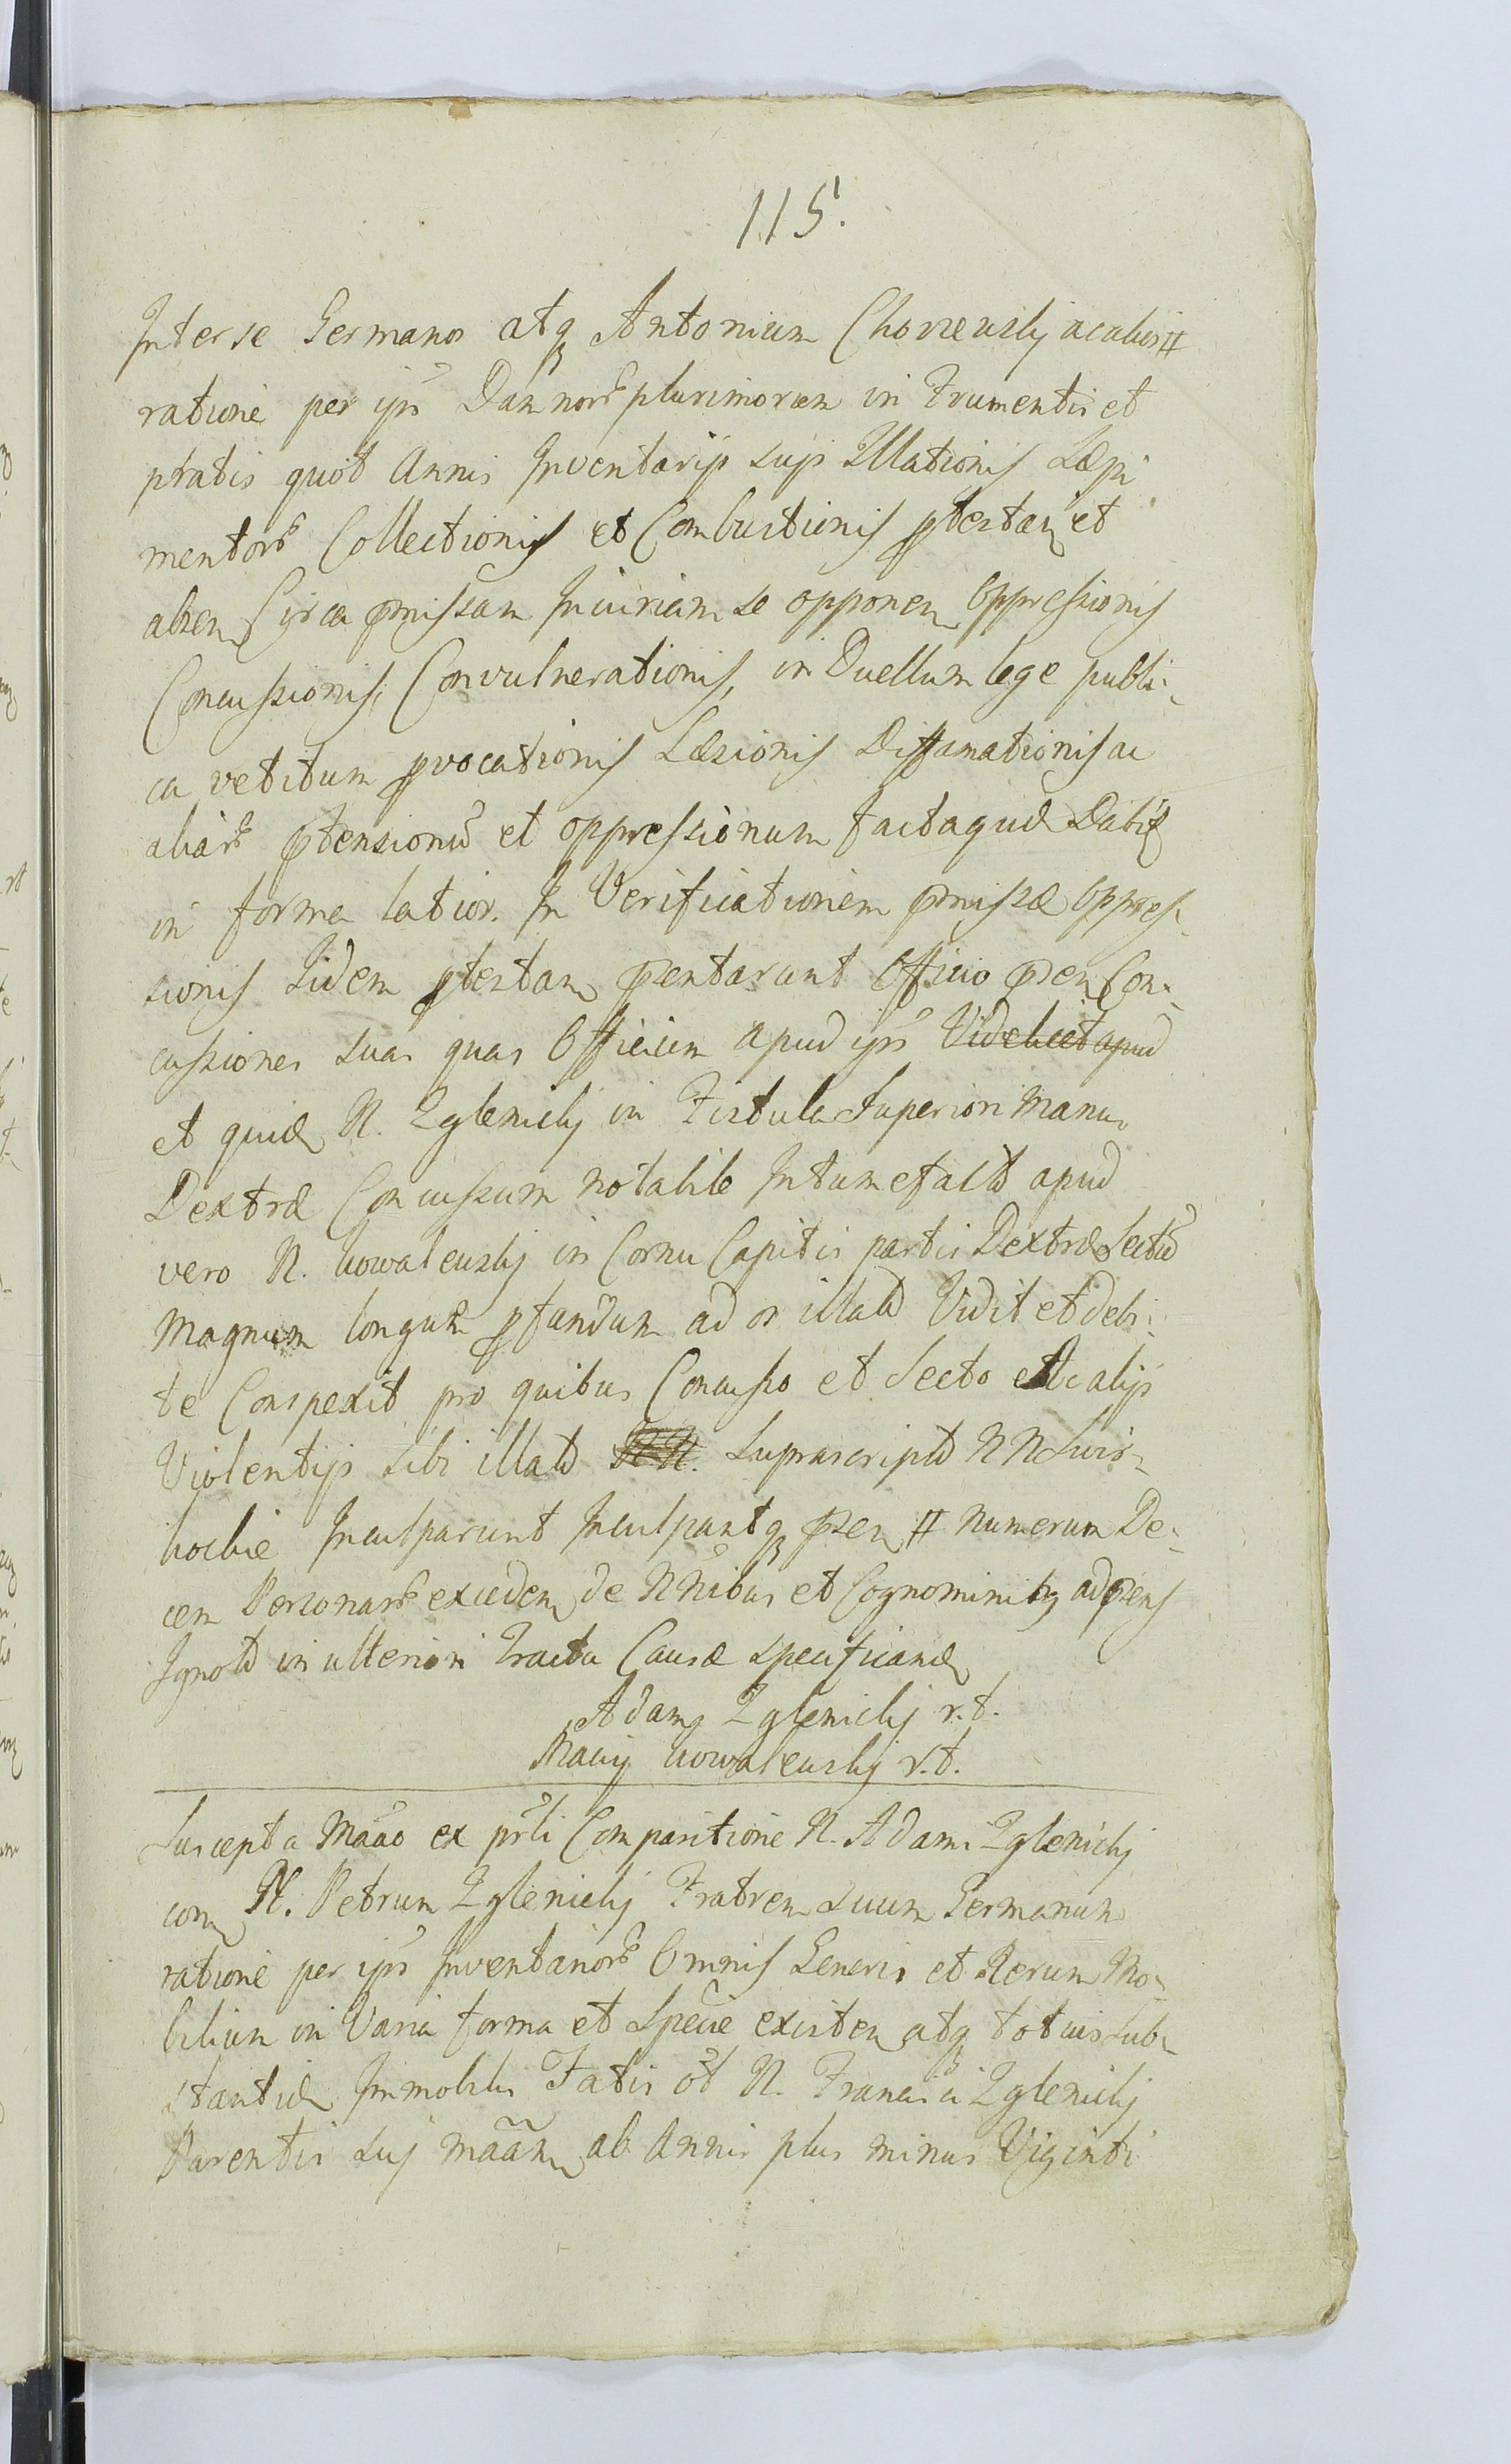 115.
Inter se Germanos atq Antonium Chorzewskj ac alios #
ratione per ips Damnor plurimorum in Frumentis et
pratis quot Annis Inventarijs sujs Illationis Sæpi
mentor Collectionis et Combustionis ptestan et
absen Circa pmissam Iniuriam se opponen Oppressionis
Concussionis, Convulnerationis, in Duellum lege publi-
ca vetitum pvocationis Læsionis Diffamationis ac
aliar ptensionu et oppressionum factaque Datis
in forma latior. In Verificationem pmissæ oppres-
sionis Iidem ptestan pentarunt Officio psen Con-
cussiones suas quas Officium apud ips Videlicet apud
et quid N. Zglenickj in Fistula Superiori manus
Dextræ Concussum notabile Intumefact apud
vero N. Kowalewskj in Cornu Capitis partis Dextræ Sectu
Magnum longum pfundum ad os illat Vidit et debi-
te Conspexit pro quibus Concusso et Secto et alijs
Violentijs sibi illat Suprascript NN Swir-
kockie Inculparunt Inculpantq psen # numerum De-
cem Personar exceden de NNibus et Cognominibq ad psens
Ignot in ulteriori Tractu Causæ specificand
Adamq Zglenickj r.t.
Maciej Kowalewskj r.t.
Suscepta Maao ex prti Comparitione N. Adami Zglenickj
con N. Petrum Zglenickj Fratrem Suum Germanum
ratione per ips Inventarior Omnis Generis et Rerum Mo-
bilium in Varia forma et Specie existen atq totius Sub-
stantiæ Immobilis Fatis ot N. Francisci Zglenickj
Parentis suj maan ab Annis plus minus Viginti